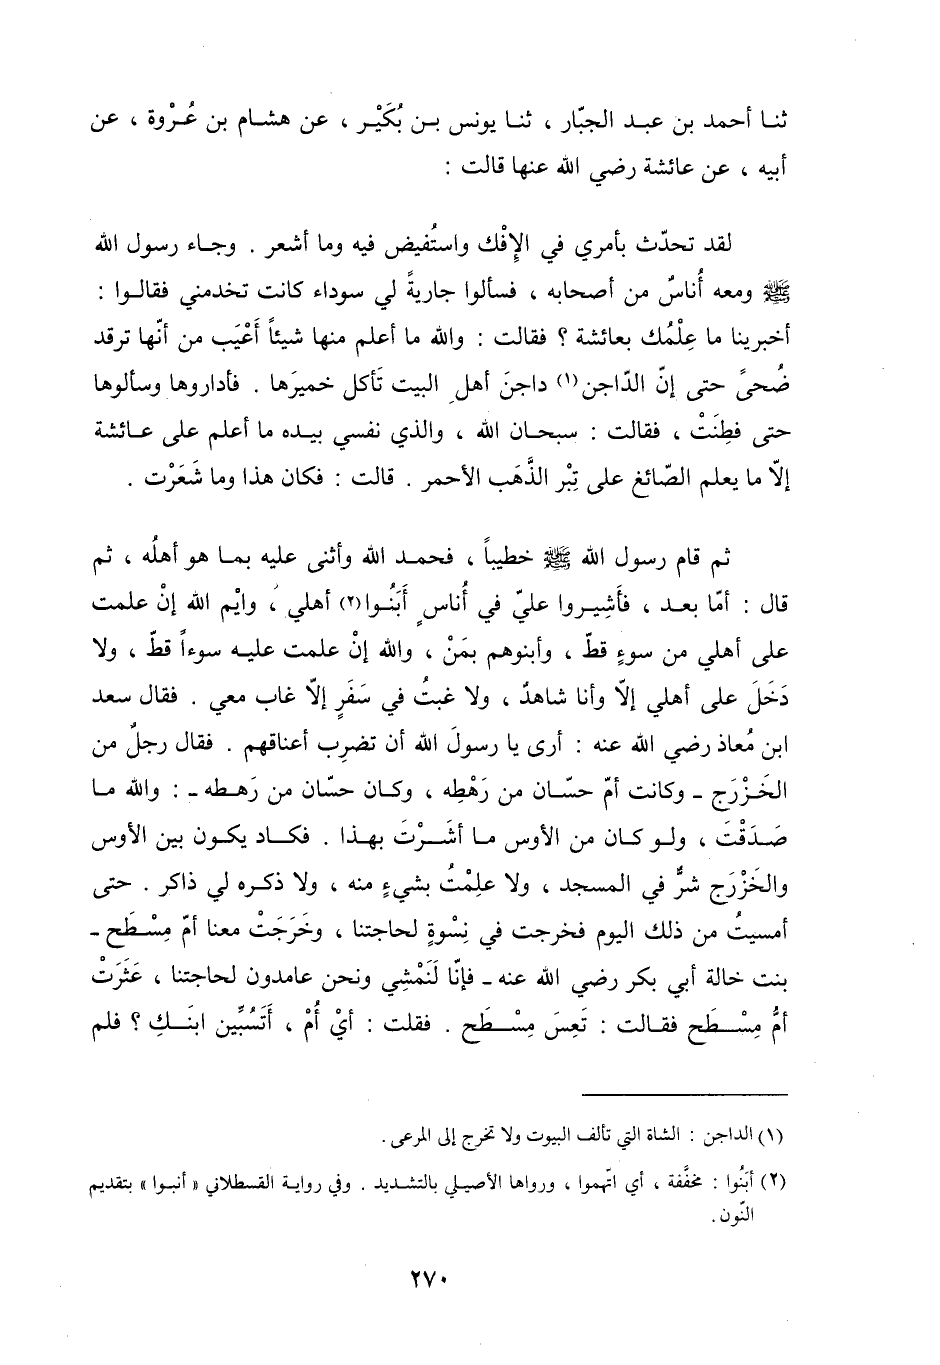 ثنا أحمد بن عبد الجبّار ، ثنا يونس بن بُكَيْر ، عن هشام بن عُرْوة ، عن
أبيه ، عن عائشة رضي الله عنها قالت :
لقد تحدّث بأمري في الإِفْك واستُفيض فيه وما أشعر . وجاء رسول الله
ﷺ ومعه أُناسٌ من أصحابه ، فسألوا جاريةً لي سوداء كانت تخدمني فقالوا :
أخبرينا ما عِلْمُك بعائشة ؟ فقالت : والله ما أعلم منها شيئاً أَعْيَب من أنّها ترقد
ضُحىً حتى إنّ الدّاجن(١) داجنَ أهلِ البيت تَأكل خميرَها . فأداروها وسألوها
حتى فطِنَتْ ، فقالت : سبحان الله ، والذي نفسي بيده ما أعلم على عائشة
إلاّ ما يعلم الصّائغ على تِبْر الذَّهَب الأحمر . قالت : فكان هذا وما شَعَرْت .
ثم قام رسول الله ﷺ خطيباً ، فحمد الله وأثنى عليه بما هو أهلُه ، ثم
قال : أمّا بعد ، فأَشِيروا عليّ في أُناسٍ أَبَنُوا(٢) أهلي ، وايْم الله إنْ علمت
على أهلي من سوءٍ قطّ ، وأبنوهم بمَنْ ، والله إنْ علمت عليه سوءاً قطّ ، ولا
دَخَلَ على أهلي إلاّ وأنا شاهدٌ ، ولا غبتُ في سَفَرٍ إلاّ غاب معي . فقال سعد
ابن مُعاذ رضي الله عنه : أرى يا رسولَ الله أن تضرِب أعناقهم . فقال رجلٌ من
الخَزْرَج ـ وكانت أمّ حسّان من رَهْطِه ، وكان حسّان من رَهطه ـ : والله ما
صَدَقْتَ ، ولو كان من الأوس ما أشَرْتَ بهذا . فكاد يكون بين الأوس
والخَزْرَج شرٌّ في المسجد ، ولا علِمْتُ بشيءٍ منه ، ولا ذكره لي ذاكر . حتى
أمسيتُ من ذلك اليوم فخرجت في نِسْوةٍ لحاجتنا ، وخَرَجَتْ معنا أمّ مِسْطَح ـ
بنت خالة أبي بكر رضي الله عنه ـ فإنّا لَنَمْشِي ونحن عامدون لحاجتنا ، عَثَرَتْ
أمُّ مِسْطَح فقالت : تَعِسَ مِسْطَح . فقلت : أيْ أُمْ ، أَتَسُبِّين ابنَكِ ؟ فلم
(١) الداجن : الشاة التي تألف البيوت ولا تخرج إلى المرعى .
(٢) أبَنُوا : مخفَّفة ، أي اتّهموا ، ورواها الأصيلي بالتشديد . وفي رواية القسطلاني « أنبوا » بتقديم
النّون .
٢٧٠